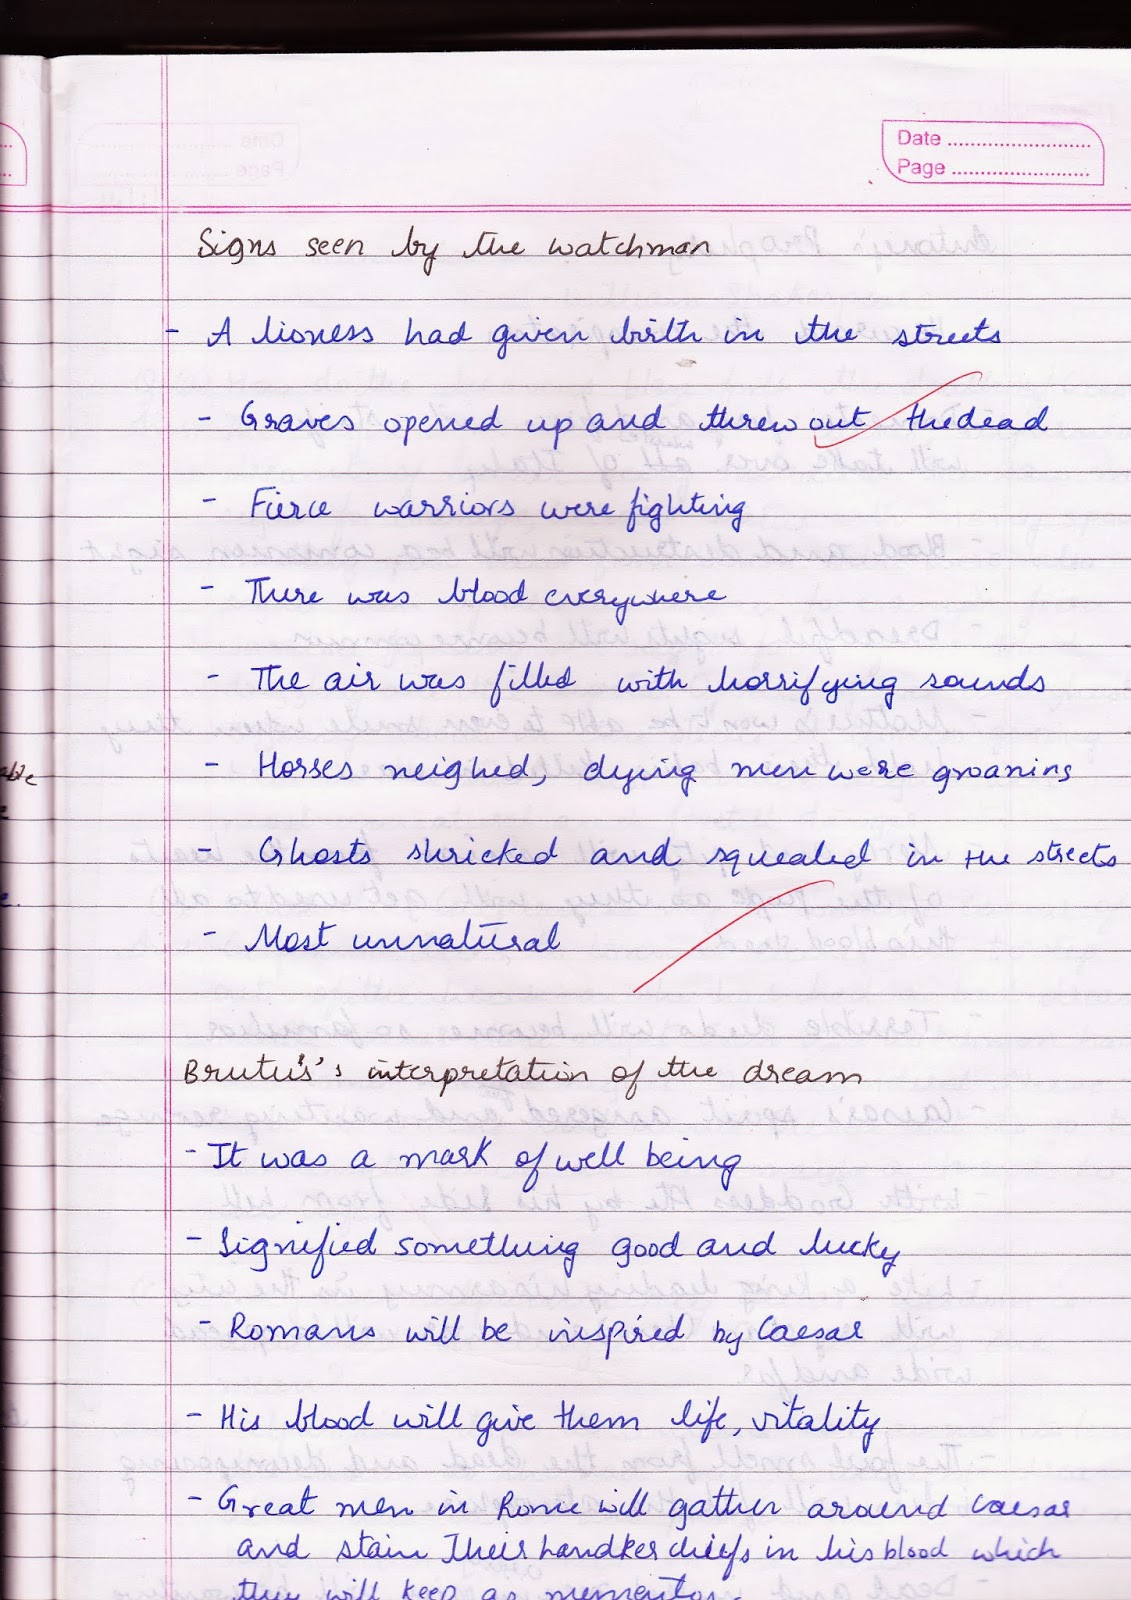 Date ..........................
Page ..........................
Signs seen by the watchman
- A lioness had given birth in the streets
- Graves opened up and threw out the dead
- Fierce warriors were fighting
- There was blood everywhere
- The air was filled with horrifying sounds
able
- Horses neighed, dying men were groaning
- Ghosts shrieked and squealed in the streets
- Most unnatural
Brutus's interpretation of the dream
- It was a mark of well being
- Signified something good and lucky
- Romans will be inspired by Caesar
- His blood will give them life, vitality
- Great men in Rome will gather around Caesar
and stain Their handkerchiefs in his blood which
they will keep as mementos.